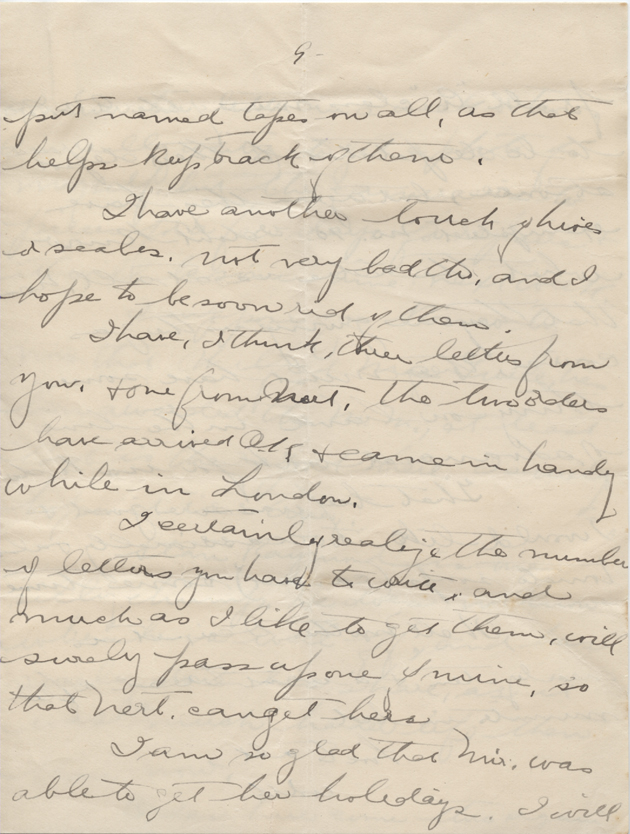 9-
put named tapes on all, as that
helps keep track of them.
I have another touch of hives
& scabes. not very bad tho, and I
hope to be soon rid of them.
I have, I think, three letters from
you, & one from Nert, the two orders
have arrived O.K & came in handy
while in London.
I certainly realize the number
of letters you have to write, and
much as I like to get them, will
surely pass up one of mine, so
that Nert. can get hers
I am so glad that Mir. was
able to get her holidays. I will